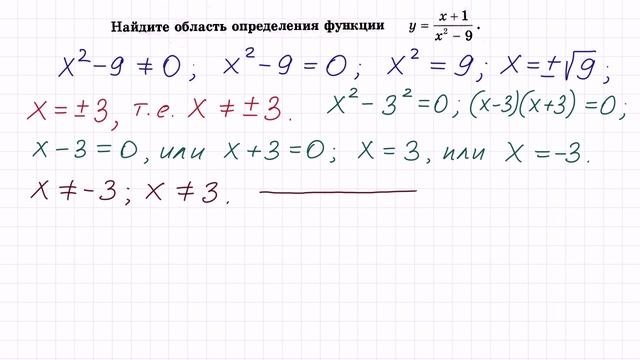 Найдите область определения функции y = \frac{x+1}{x^2-9}.
x² - 9 ≠ 0; x² - 9 = 0; x² = 9; x = ±√9;
x = ±3, т.е. x ≠ ±3. x² - 3² = 0; (x-3)(x+3) = 0;
x - 3 = 0, или x + 3 = 0; x = 3, или x = -3.
x ≠ -3; x ≠ 3.